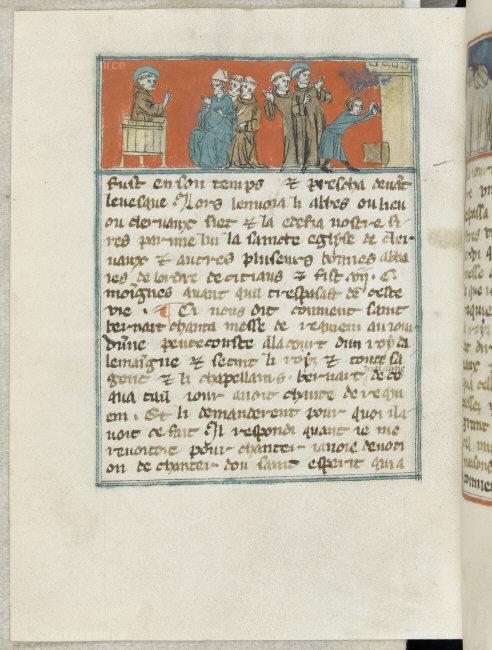 fust en son temps ⁊ prescha deuãt
leuesque Lors lenuoia li abbes ou lieu
ou cleruaux siet ⁊ la edefia nostre si
res par mie lui la saincte eglyse de cler
uaux ⁊ autres pluseurs bonnes abba
ies de lordre de citiaus ⁊ fist .vij. C.
moignes auant quil trespassast de ceste
vie . ¶ Ci nous dit comment saint
bernart chanta messe de requiem au iour
dune pentecouste a la court dun roy da
lemaigne ⁊ sectint li roys ⁊ toute sa
gent ⁊ li chapellains . bernart de ce
qua tail iour auoit chante de requi
em . Et li demanderent pour quoi il a
uoit ce fait Il respondi quant ie me
reuortoit pour chanter ianoie deuoti
on de chanter dou saint esperit qui a